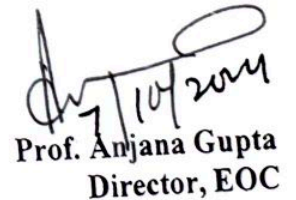 7/10/2024
Prof. Anjana Gupta
Director, EOC